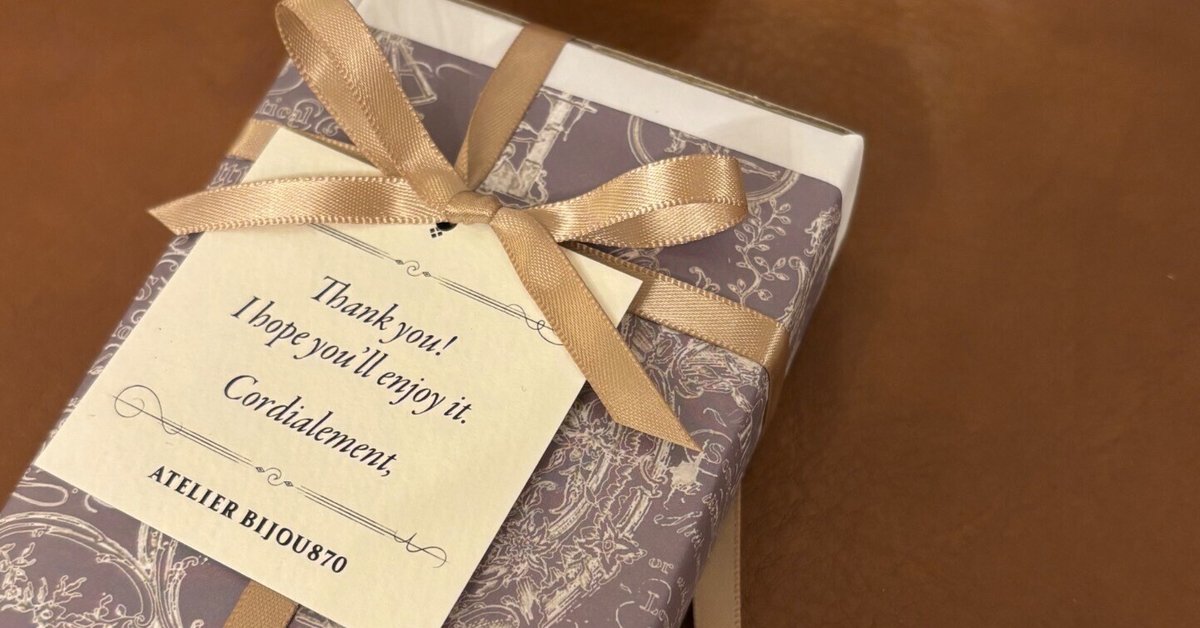 Thank you!
I hope you'll enjoy it.
Cordialement,
ATELIER BIJOU870